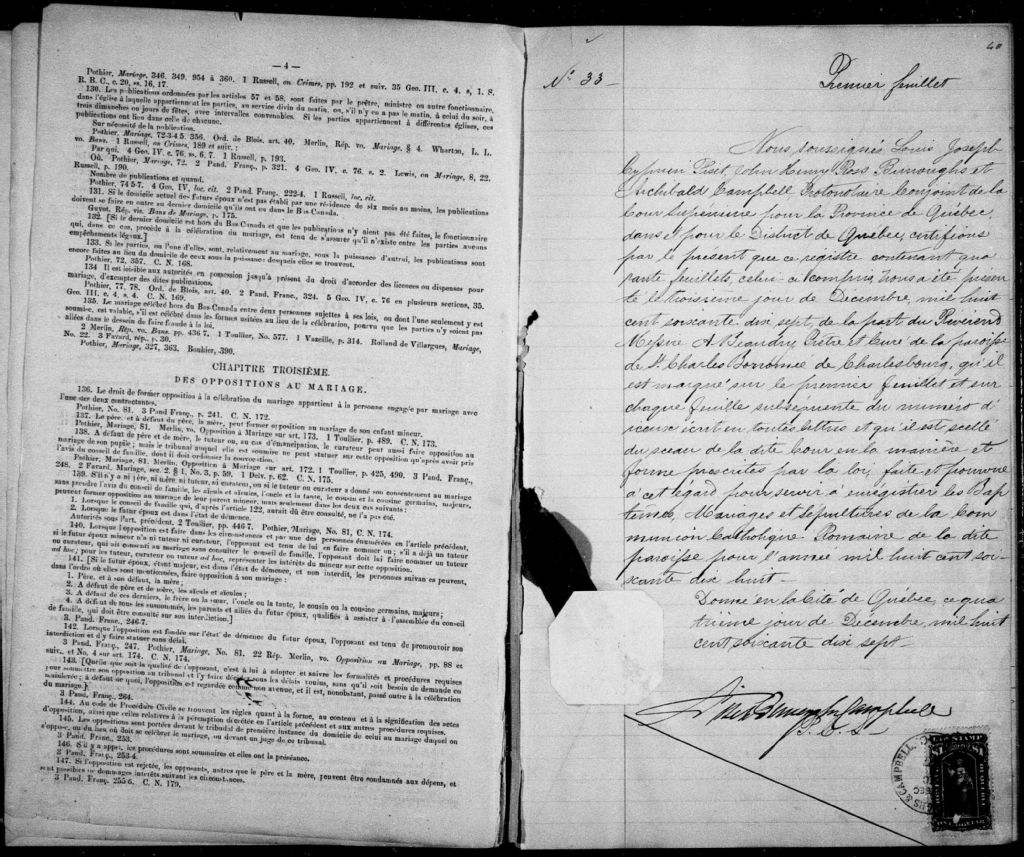 — 4 —
Pothier, Mariage, 346. 349. 954 à 360. 1 Russell, on Crimes, pp. 192 et suiv. 35 Geo. III, c. 4. s, 1. S.
R. B. C., c. 20, ss. 16, 17.
130. Les publications ordonnées par les articles 57 et 58, sont faites par le prêtre, ministre ou autre fonctionnaire,
dans l'église à laquelle appartiennent les parties, au service divin du matin, ou, s'il n'y en a pas le matin, à celui du soir, à
trois dimanches ou jours de fêtes, avec intervalles convenables. Si les parties appartiennent à différentes églises, ces
publications ont lieu dans celle de chacune.
Sur nécessité de la publication.
Pothier, Mariage, 72-3-4 5. 356. Ord. de Blois, art. 40. Merlin, Rép. vo. Mariage, § 4. Wharton, L. L.
vo. Bans. 1 Russell, on Crimes, 189 et suiv. :
Par qui. 4 Geo. IV, c. 76, ss. 6, 7. 1 Russell, p. 193.
Où. Pothier, Mariage, 72. 2 Pand. Franç. p. 321. 4 Geo. IV, c. 76, s. 2. Lewis, on Mariage, 8, 22.
Russell, p. 190.
Nombre de publications et quand.
Pothier, 74 5-7. 4 Geo. IV, loc. cit. 2 Pand. Franç. 222-4. 1 Russell, loc. cit.
131. Si le domicile actuel des futurs époux n'est pas établi par une résidence de six mois au moins, les publications
doivent se faire en outre au dernier domicile qu'ils ont eu dans le Bas Canada.
Guyot, Rép. vis. Bans de Mariage, p. 175.
132. [Si le dernier domicile est hors du Bas Canada et que les publications n'y aient pas été faites, le fonctionnaire
qui, dans ce cas, procède à la célébration du mariage, est tenu de s'assurer qu'il n'existe entre les parties aucuns
empêchements légaux.]
133. Si les parties, ou l'une d'elles, sont, relativement au mariage, sous la puissance d'autrui, les publications sont
encore faites au lieu du domicile de ceux sous la puissance desquels elles se trouvent.
Pothier, 72, 357. C. N. 168.
134 Il est loisible aux autorités en possession jusqu'à présent du droit d'accorder des licences ou dispenses pour
mariage, d'exempter des dites publications.
Pothier, 77, 78. Ord. de Blois, art. 40. 2 Pand. Franç., 324. 5 Geo. IV, c. 76 en plusieurs sections, 35.
Geo. III, c. 4, s. 4. C. N. 169.
135. Le mariage célébré hors du Bas Canada entre deux personnes sujettes à ses lois, ou dont l'une seulement y est
soumise, est valable, s'il est célébré dans les formes usitées au lieu de la célébration, pourvu que les parties n'y soient pas
allées dans le dessein de faire fraude à la loi.
2 Merlin, Rép. vo. Bans, pp. 436-7. 1 Toullier, No. 577. 1 Vazeille, p. 314. Rolland de Villargues, Mariage,
No. 22. 3 Favard, rép., p. 30.
Pothier, Mariage, 327, 363. Bouhier, 390.
CHAPITRE TROISIÈME.
DES OPPOSITIONS AU MARIAGE.
136. Le droit de former opposition à la célébration du mariage appartient à la personne engagée par mariage avec
l'une des deux contractantes.
Pothier, No. 81. 3 Pand Franç., p. 241. C. N. 172.
137. Le père, et à défaut du père, la mère, peut former opposition au mariage de son enfant mineur.
Pothier, Mariage, 81. Merlin, vo. Opposition à Mariage sur art. 173. 1 Toullier, p. 489. C. N. 173.
138. A défaut de père et de mère, le tuteur ou, au cas d'émancipation, le curateur peut aussi faire opposition au
mariage de son pupille; mais le tribunal auquel elle est soumise ne peut statuer sur cette opposition qu'après avoir pris
l'avis du conseil de famille, dont il doit ordonner la convocation.
Pothier, Mariage, 81. Merlin, Opposition à Mariage sur art. 172. 1 Toullier, p. 425, 490. 3 Pand. Franç.,
248. 2 Favard, Mariage, sec. 2 § 1, No. 3, p. 59. 1 Delv. p. 62. C. N. 175.
139. S'il n'y a ni père, ni mère, ni tuteur, ni curateur, ou si le tuteur ou curateur a donné son consentement au mariage
sans prendre l'avis du conseil de famille, les aïeuls et aïeules, l'oncle et la tante, le cousin et la cousine germains, majeurs,
peuvent former opposition au mariage de leur parent mineur, mais seulement dans les deux cas suivants :
1. Lorsque le conseil de famille qui, d'après l'article 122, aurait dû être consulté, ne l'a pas été.
2. Lorsque le futur époux est dans l'état de démence.
Autorités sous l'art. précédent. 2 Toullier, pp. 446-7. Pothier, Mariage, No. 81, C. N. 174.
140. Lorsque l'opposition est faite dans les circonstances et par une des personnes énumérées en l'article précédent,
si le futur époux mineur n'a ni tuteur ni curateur, l'opposant est tenu de lui en faire nommer un; s'il a déjà un tuteur
ou curateur, qui ait consenti au mariage sans consulter le conseil de famille, l'opposant doit lui faire nommer un tuteur
ad hoc; pour les tuteur, curateur ou tuteur ad hoc, représenter les intérêts du mineur sur cette opposition.
141. [Si le futur époux, étant majeur, est dans l'état de démence, et non interdit, les personnes suivantes peuvent,
dans l'ordre où elles sont mentionnées, faire opposition à son mariage :
1. Père, et à son défaut, la mère ;
2. A défaut de père et de mère, les aïeuls et aïeules ;
3. A défaut de ces derniers, le frère ou la sœur, l'oncle ou la tante, le cousin ou la cousine germains, majeurs ;
4. A défaut de tous les susnommés, les parents et alliés du futur époux, qualifiés à assister à l'assemblée du conseil
de famille, qui doit être consulté sur son interdiction.]
3. Pand. Franç., 246-7.
142. Lorsque l'opposition est fondée sur l'état de démence du futur époux, l'opposant est tenu de promouvoir son
interdiction et d'y faire statuer sans délai.
3 Pand. Franç. 247. Pothier, Mariage, No. 81. 22 Rép. Merlin, vo. Opposition au Mariage, pp. 88 et
suiv., et No. 4 sur art. 174. C. N. 174.
143. [Quelle que soit la qualité de l'opposant, c'est à lui à adopter et suivre les formalités et procédures requises
pour soumettre son opposition au tribunal et l'y faire décider sous les délais voulus, sans qu'il soit besoin de demande en
mainlevée; à défaut de quoi, l'opposition est regardée comme non avenue, et il est, nonobstant, passé outre à la célébration
du mariage.]
3 Pand. Franç., 264.
144. Au code de Procédure Civile se trouvent les règles quant à la forme, au contenu et à la signification des actes
d'opposition, ainsi que celles relatives à la péremption décrétée en l'article précédent et aux autres procédures requises.
145. Les oppositions sont portées devant le tribunal de première instance du domicile de celui au mariage duquel on
s'oppose, ou du lieu où doit se célébrer le mariage, ou devant un juge de ce tribunal.
3 Pand. Franç. 253.
146. S'il y a appel, les procédures sont sommaires et elles ont la préséance.
3 Pand. Franç., 253-4.
147. Si l'opposition est rejetée, les opposants, autres que le père et la mère, peuvent être condamnés aux dépens, et
sont passibles de dommages intérêts suivant les circonstances.
3 Pand. Franç. 255 6. C. N. 179.
40
No. 33 —
Premier feuillet
Nous soussignés Louis Joseph
Cyprien Fiset, John Henry Ross Burroughs et
Archibald Campbell Protonotaire Conjoint de la
Cour Supérieure pour la Province de Québec,
dans et pour le District de Québec, certifions
par le présent que ce registre contenant qua
rante feuillets, celui-ci compris, nous a été présen
té le troisième jour de Décembre, mil huit
cent soixante dix sept, de la part du Révérend
Messire A Beaudry Prêtre et Curé de la paroisse
de St Charles Borromée de Charlesbourg, qu'il
est marqué sur le premier feuillet et sur
chaque feuille subséquente du numéro d'
iceux écrit en toutes lettres et qu'il est scellé
du sceau de la dite Cour en la manière et
forme prescrites par la loi, faite et pourvue
à cet égard pour servir à enrégistrer les Bap
têmes Mariages et Sépultures de la Com
munion Catholique Romaine de la dite
paroisse pour l'année mil huit cent soi-
xante dix huit —
Donné en la Cité de Québec, ce qua
trième jour de Décembre, mil huit
cent soixante dix sept —
Fiset Burroughs Campbell
P. C. S.
& CAMPBELL
STAMP